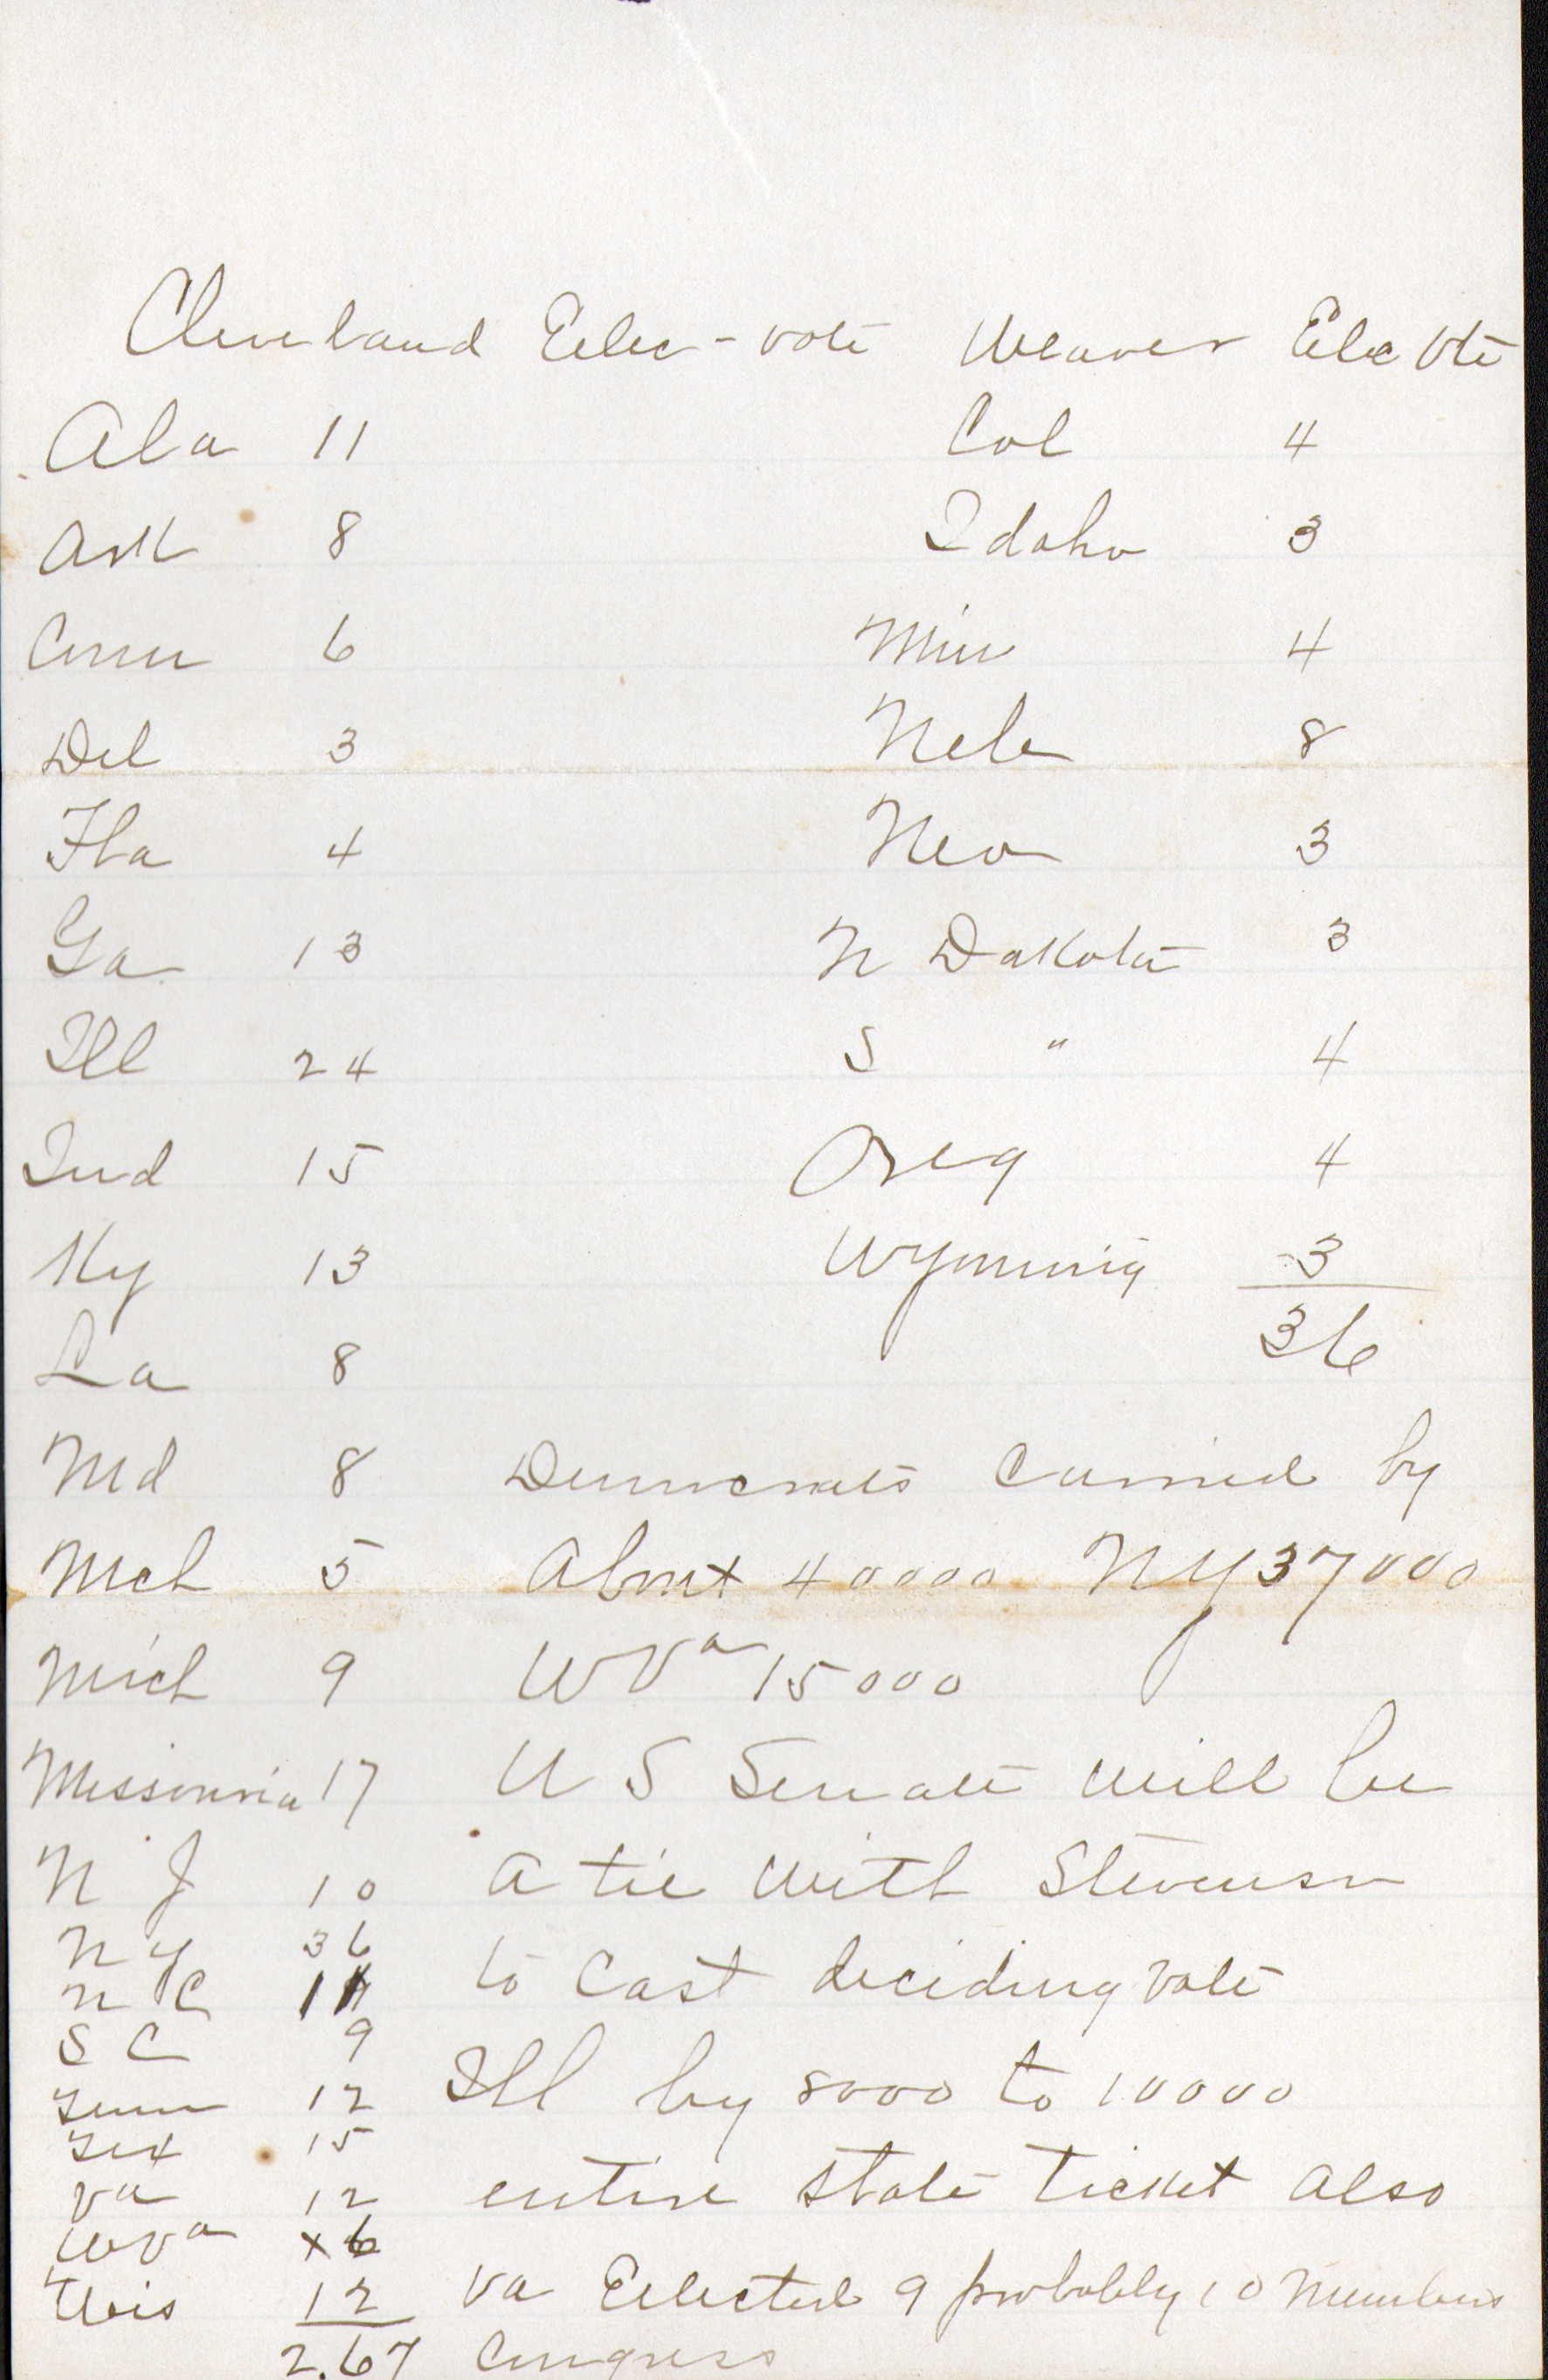 Cleveland Elec - vote Weaver Elec Vte
Ala 11 Col 4
Ark 8 Idaho 3
Conn 6 Min 4
Del 3 Neb 8
Fla 4 Nev 3
Ga 13 N Dakota 3
Ill 24 S " 4
Ind 15 Oreg 4
Ky 13 Wyoming 3
36
La 8
Md 8 Democrats Carried by
Mch 5 About 40000 NY 37000
Mich 9 W Va 15000
17 U S Senate will be
N J 10 a tie with Stevenson
N Y 36
N C 11 to Cast deciding vote
S C 9
Tenn 12 Ill by 8000 to 10000
Tex 15
Va 12 entire state ticket also
W Va 6
Wis 12 Va Elected 9 probably 10 Members
2.67 Congress